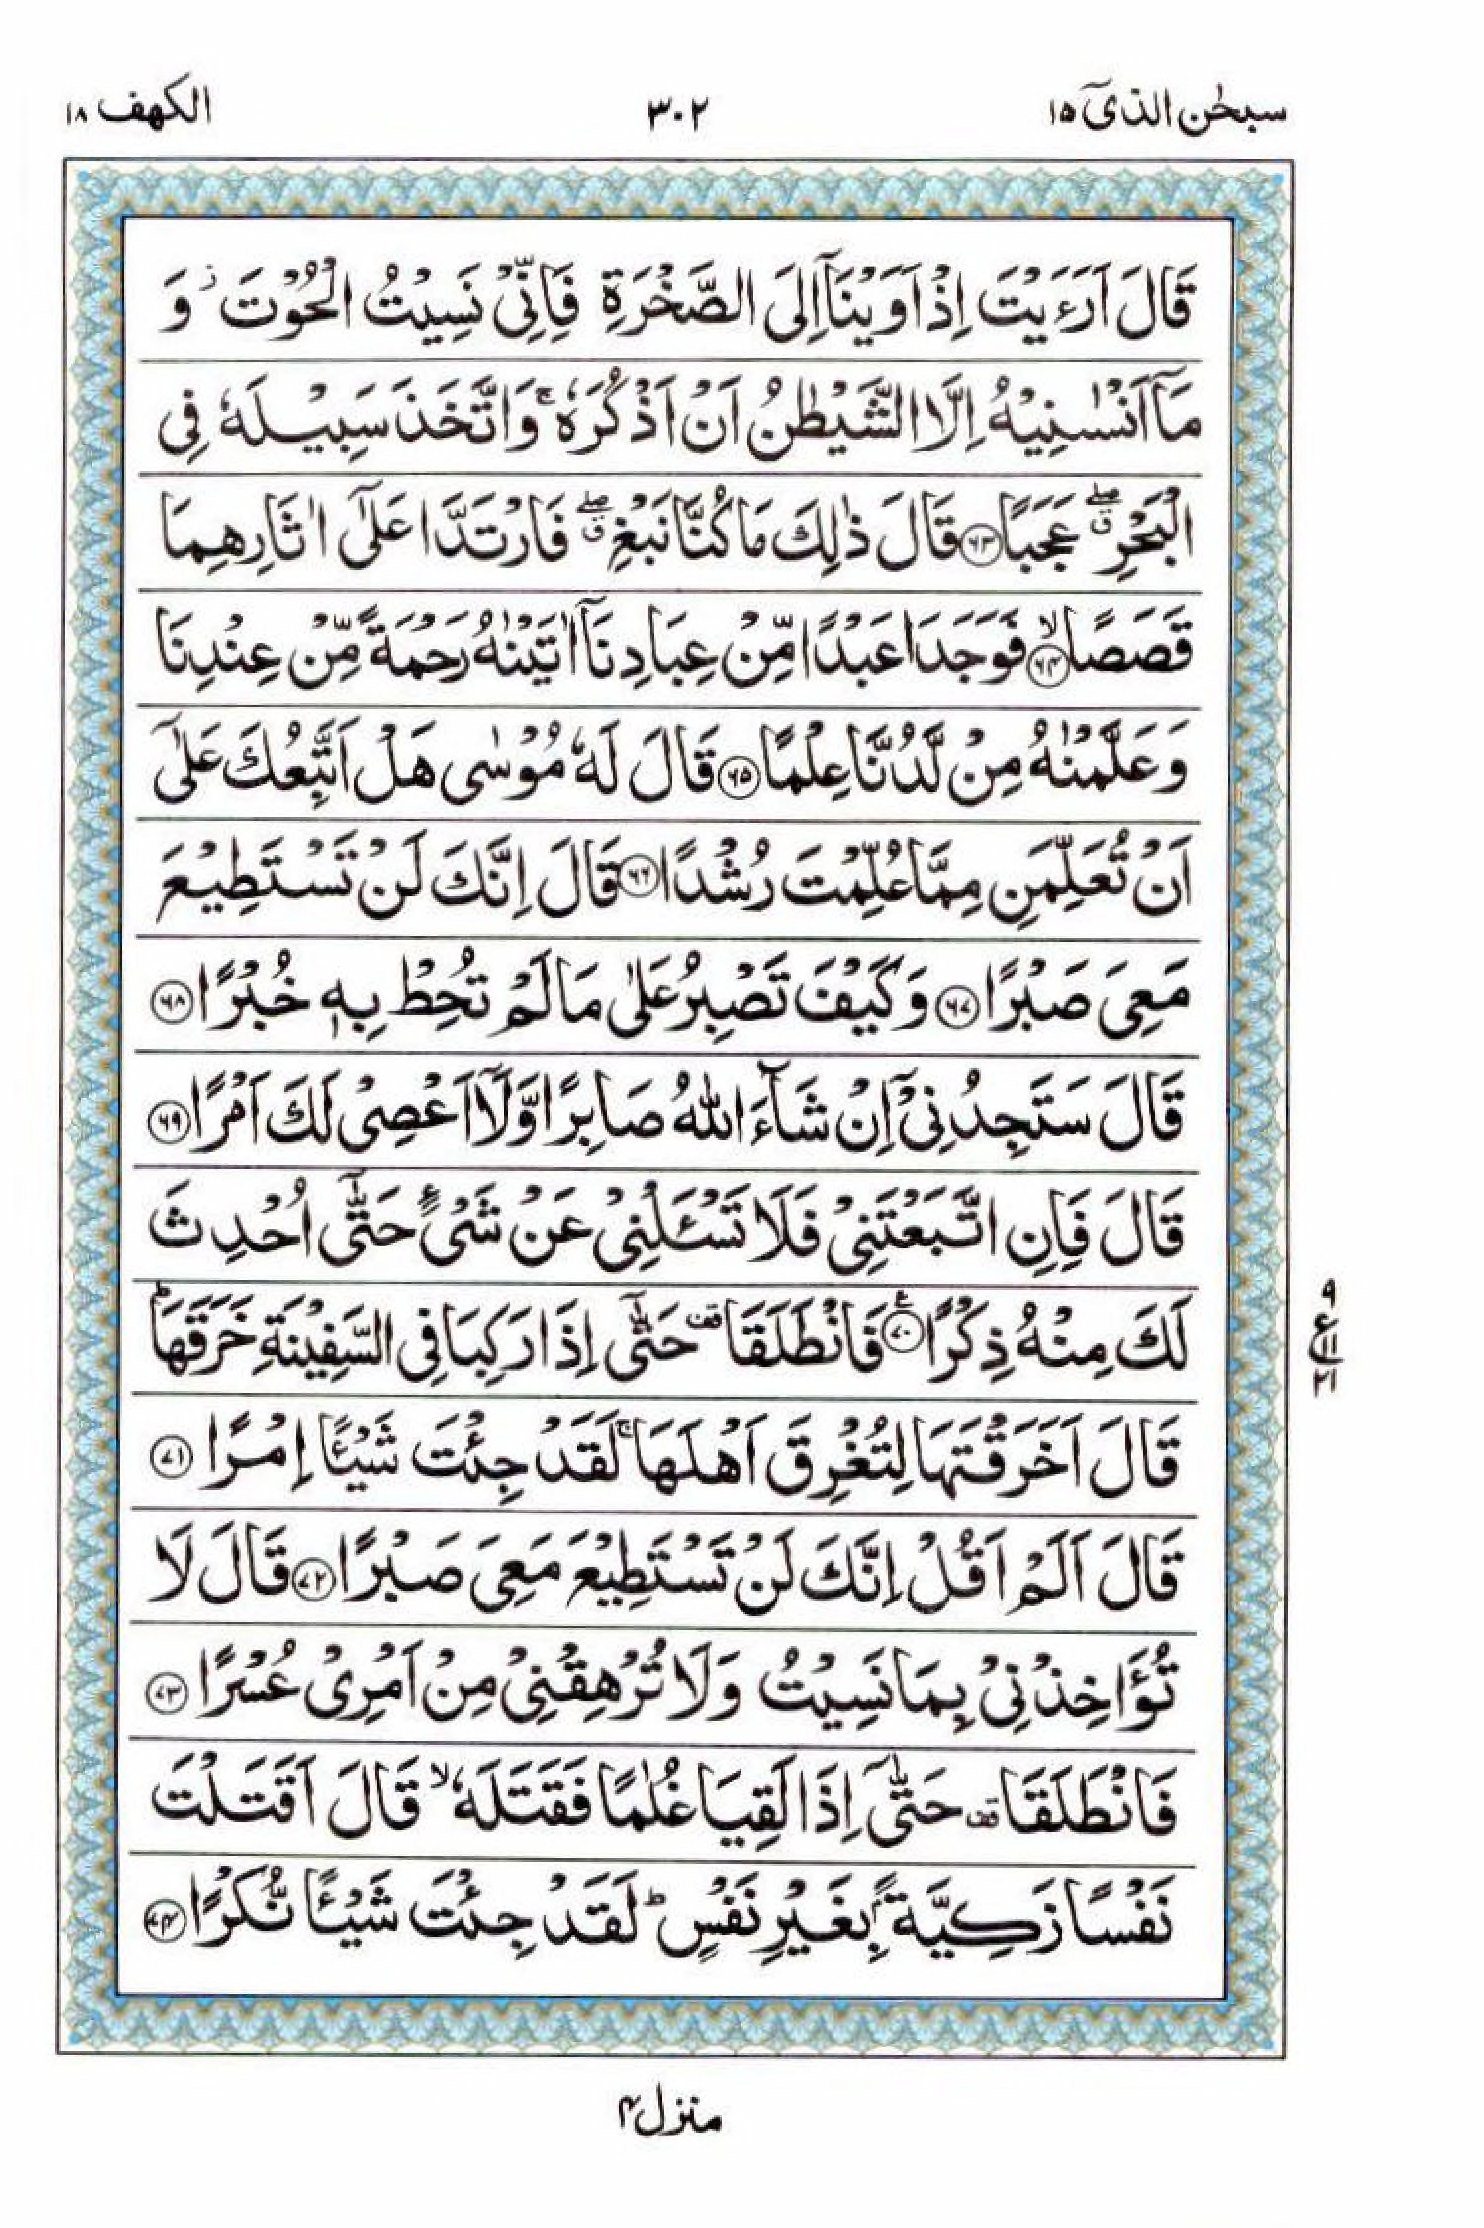 سبحٰن الذیٓ ١٥
٣٠٢
الکهف ١٨
قَالَ اَرَءَیْتَ اِذْ اَوَیْنَاۤ اِلَی الصَّخْرَةِ فَاِنِّیْ نَسِیْتُ الْحُوْتَ ؗ وَ
مَاۤ اَنْسٰىنِیْهُ اِلَّا الشَّیْطٰنُ اَنْ اَذْكُرَهٗ ۚ وَاتَّخَذَ سَبِیْلَهٗ فِی
الْبَحْرِ ۖۗ عَجَبًا ﴿٦٣﴾ قَالَ ذٰلِكَ مَا كُنَّا نَبْغِ ۖۗ فَارْتَدَّا عَلٰۤی اٰثَارِهِمَا
قَصَصًا ﴿٦٤﴾ۙ فَوَجَدَا عَبْدًا مِّنْ عِبَادِنَاۤ اٰتَیْنٰهُ رَحْمَةً مِّنْ عِنْدِنَا
وَعَلَّمْنٰهُ مِنْ لَّدُنَّا عِلْمًا ﴿٦٥﴾ قَالَ لَهٗ مُوْسٰی هَلْ اَتَّبِعُكَ عَلٰۤی
اَنْ تُعَلِّمَنِ مِمَّا عُلِّمْتَ رُشْدًا ﴿٦٦﴾ قَالَ اِنَّكَ لَنْ تَسْتَطِیْعَ
مَعِیَ صَبْرًا ﴿٦٧﴾ وَكَیْفَ تَصْبِرُ عَلٰی مَا لَمْ تُحِطْ بِهٖ خُبْرًا ﴿٦٨﴾
قَالَ سَتَجِدُنِیْۤ اِنْ شَآءَ اللّٰهُ صَابِرًا وَّلَاۤ اَعْصِیْ لَكَ اَمْرًا ﴿٦٩﴾
قَالَ فَاِنِ اتَّبَعْتَنِیْ فَلَا تَسْـَٔلْنِیْ عَنْ شَیْءٍ حَتّٰۤی اُحْدِثَ
لَكَ مِنْهُ ذِكْرًا ﴿٧٠﴾ۧ فَانْطَلَقَا ۥ حَتّٰۤی اِذَا رَكِبَا فِی السَّفِیْنَةِ خَرَقَهَا ؕ
٩
ع ١١
٢١
قَالَ اَخَرَقْتَهَا لِتُغْرِقَ اَهْلَهَا ۚ لَقَدْ جِئْتَ شَیْـًٔا اِمْرًا ﴿٧١﴾
قَالَ اَلَمْ اَقُلْ اِنَّكَ لَنْ تَسْتَطِیْعَ مَعِیَ صَبْرًا ﴿٧٢﴾ قَالَ لَا
تُؤَاخِذْنِیْ بِمَا نَسِیْتُ وَلَا تُرْهِقْنِیْ مِنْ اَمْرِیْ عُسْرًا ﴿٧٣﴾
فَانْطَلَقَا ۥ حَتّٰۤی اِذَا لَقِیَا غُلٰمًا فَقَتَلَهٗ ۙ قَالَ اَقَتَلْتَ
نَفْسًا زَكِیَّةًۢ بِغَیْرِ نَفْسٍ ؕ لَقَدْ جِئْتَ شَیْـًٔا نُّكْرًا ﴿٧٤﴾
منزل ٤